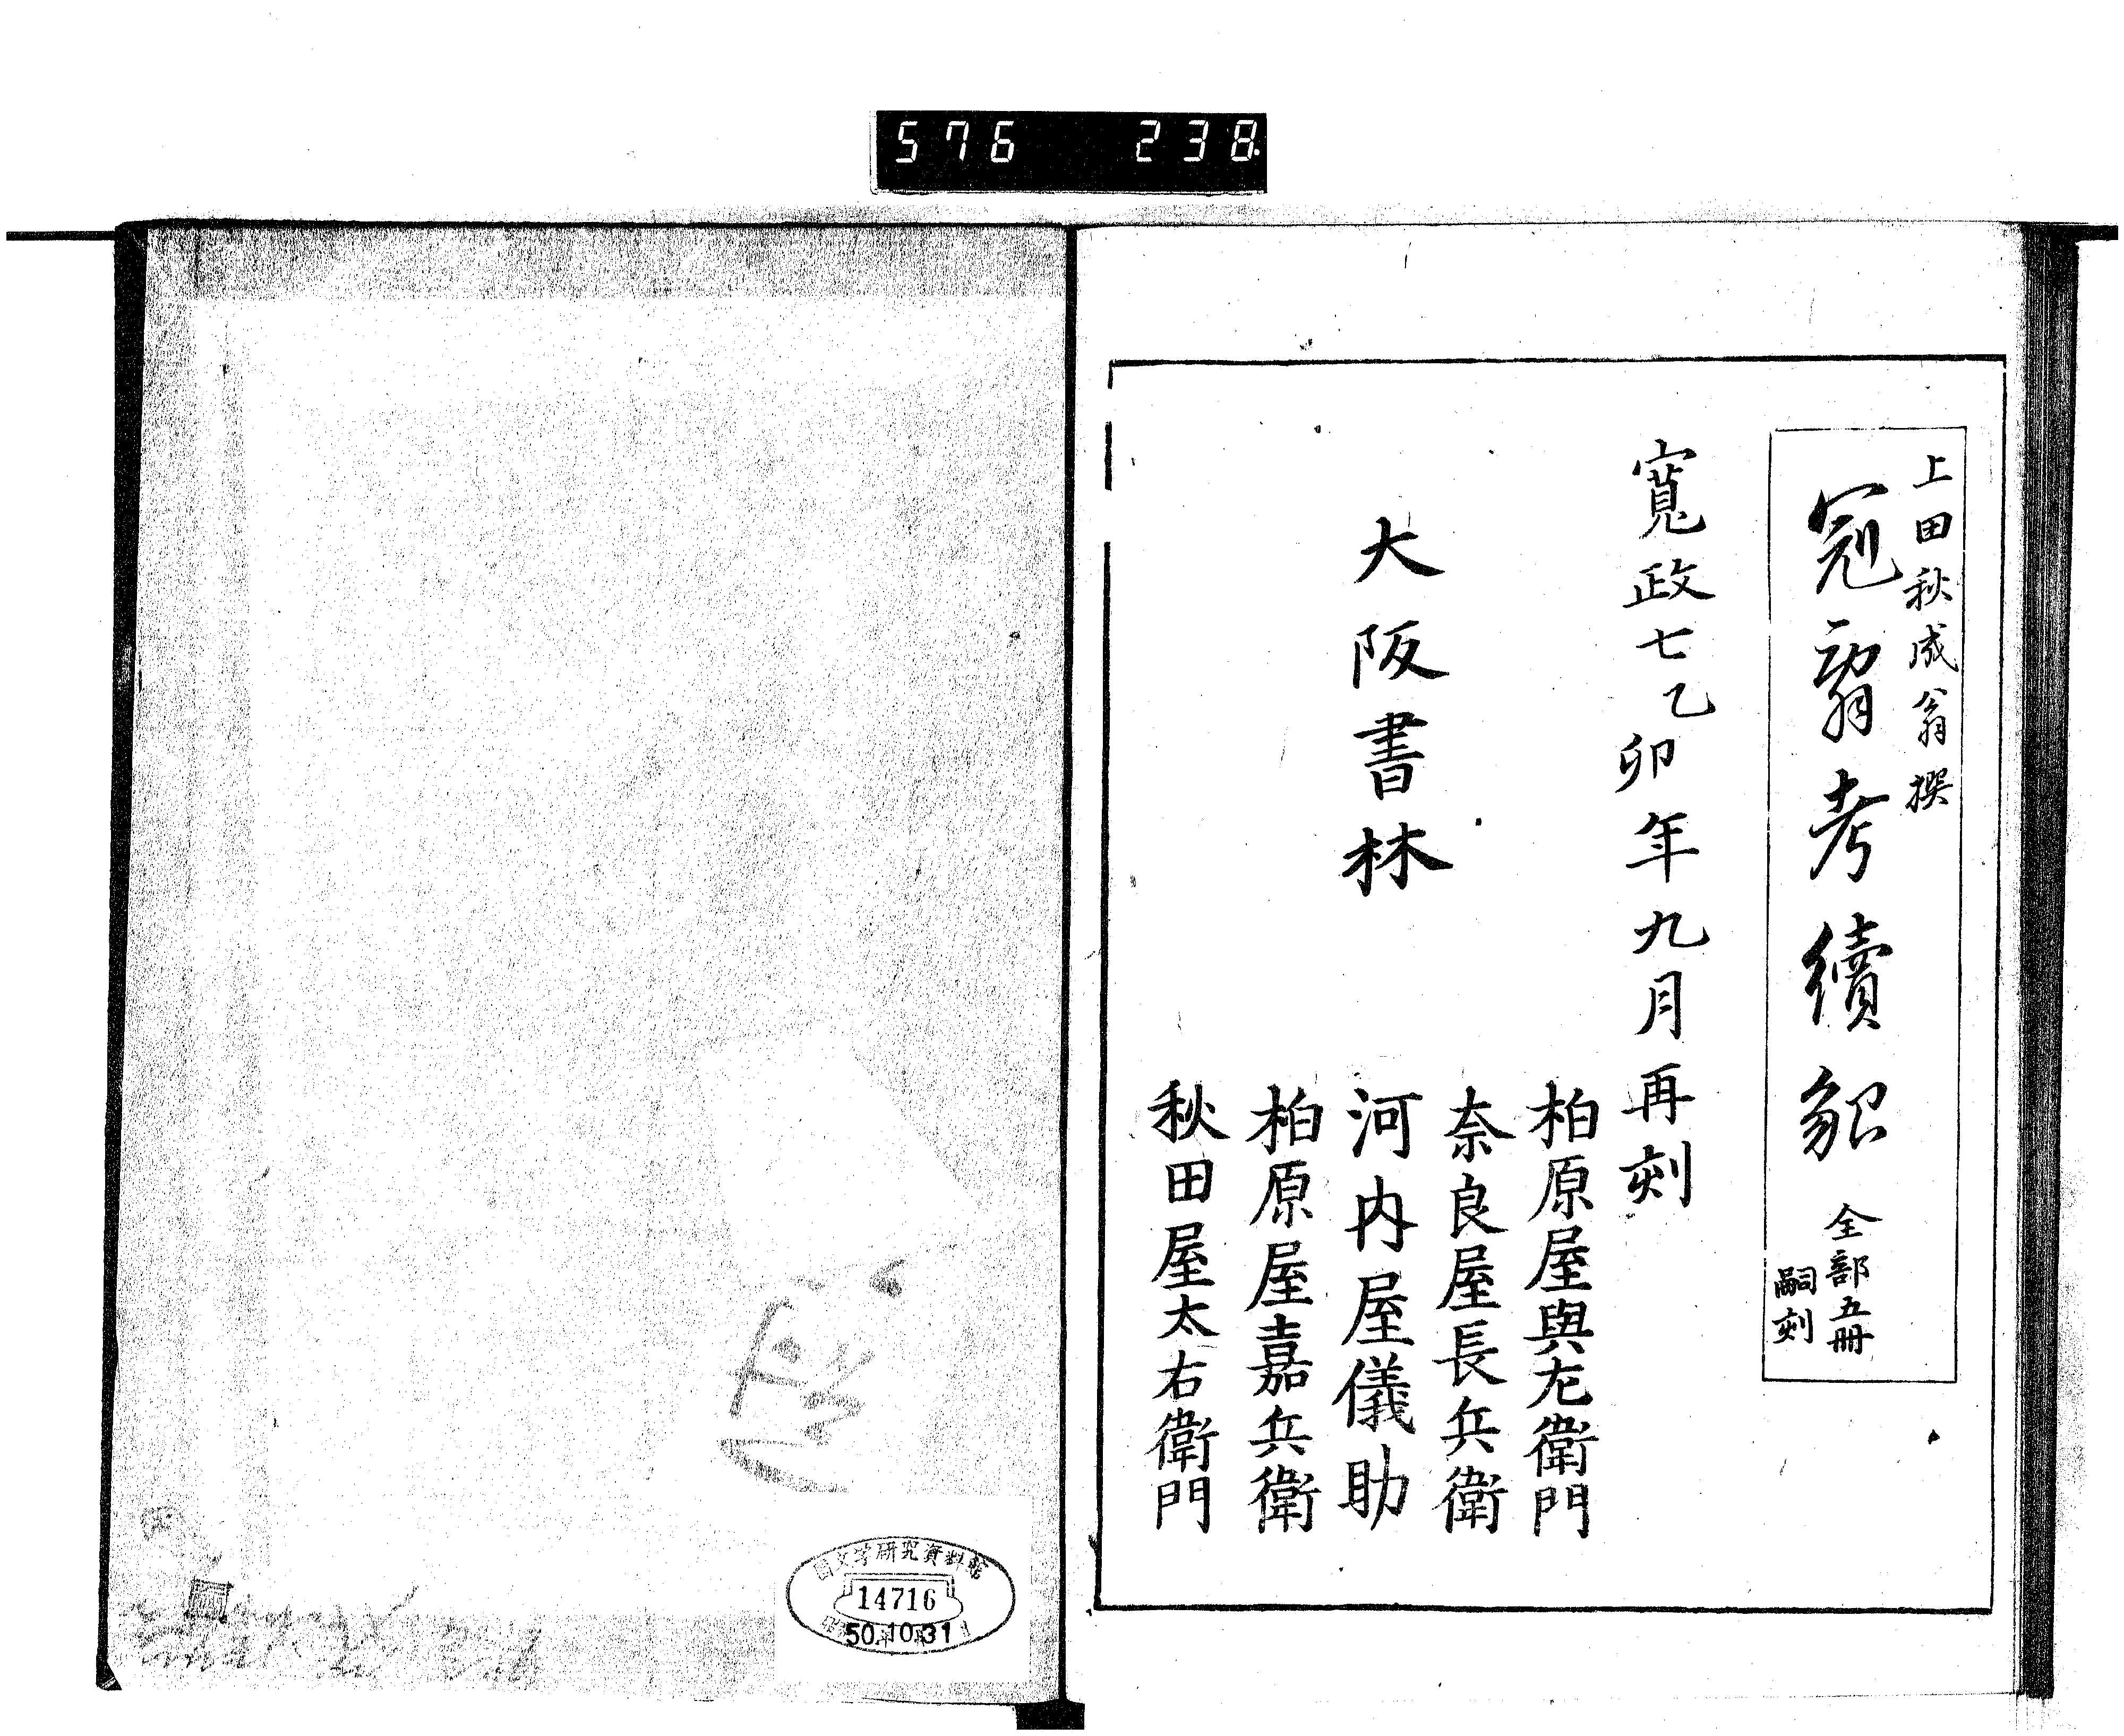 576 238
上田秋成翁撰
冠辭考續貂 全部五冊
嗣刻
寛政七乙卯年九月再刻
大阪書林
柏原屋與左衛門
奈良屋長兵衛
河内屋儀助
柏原屋嘉兵衛
秋田屋太右衛門
國文学研究資料館
14716
50.10.31